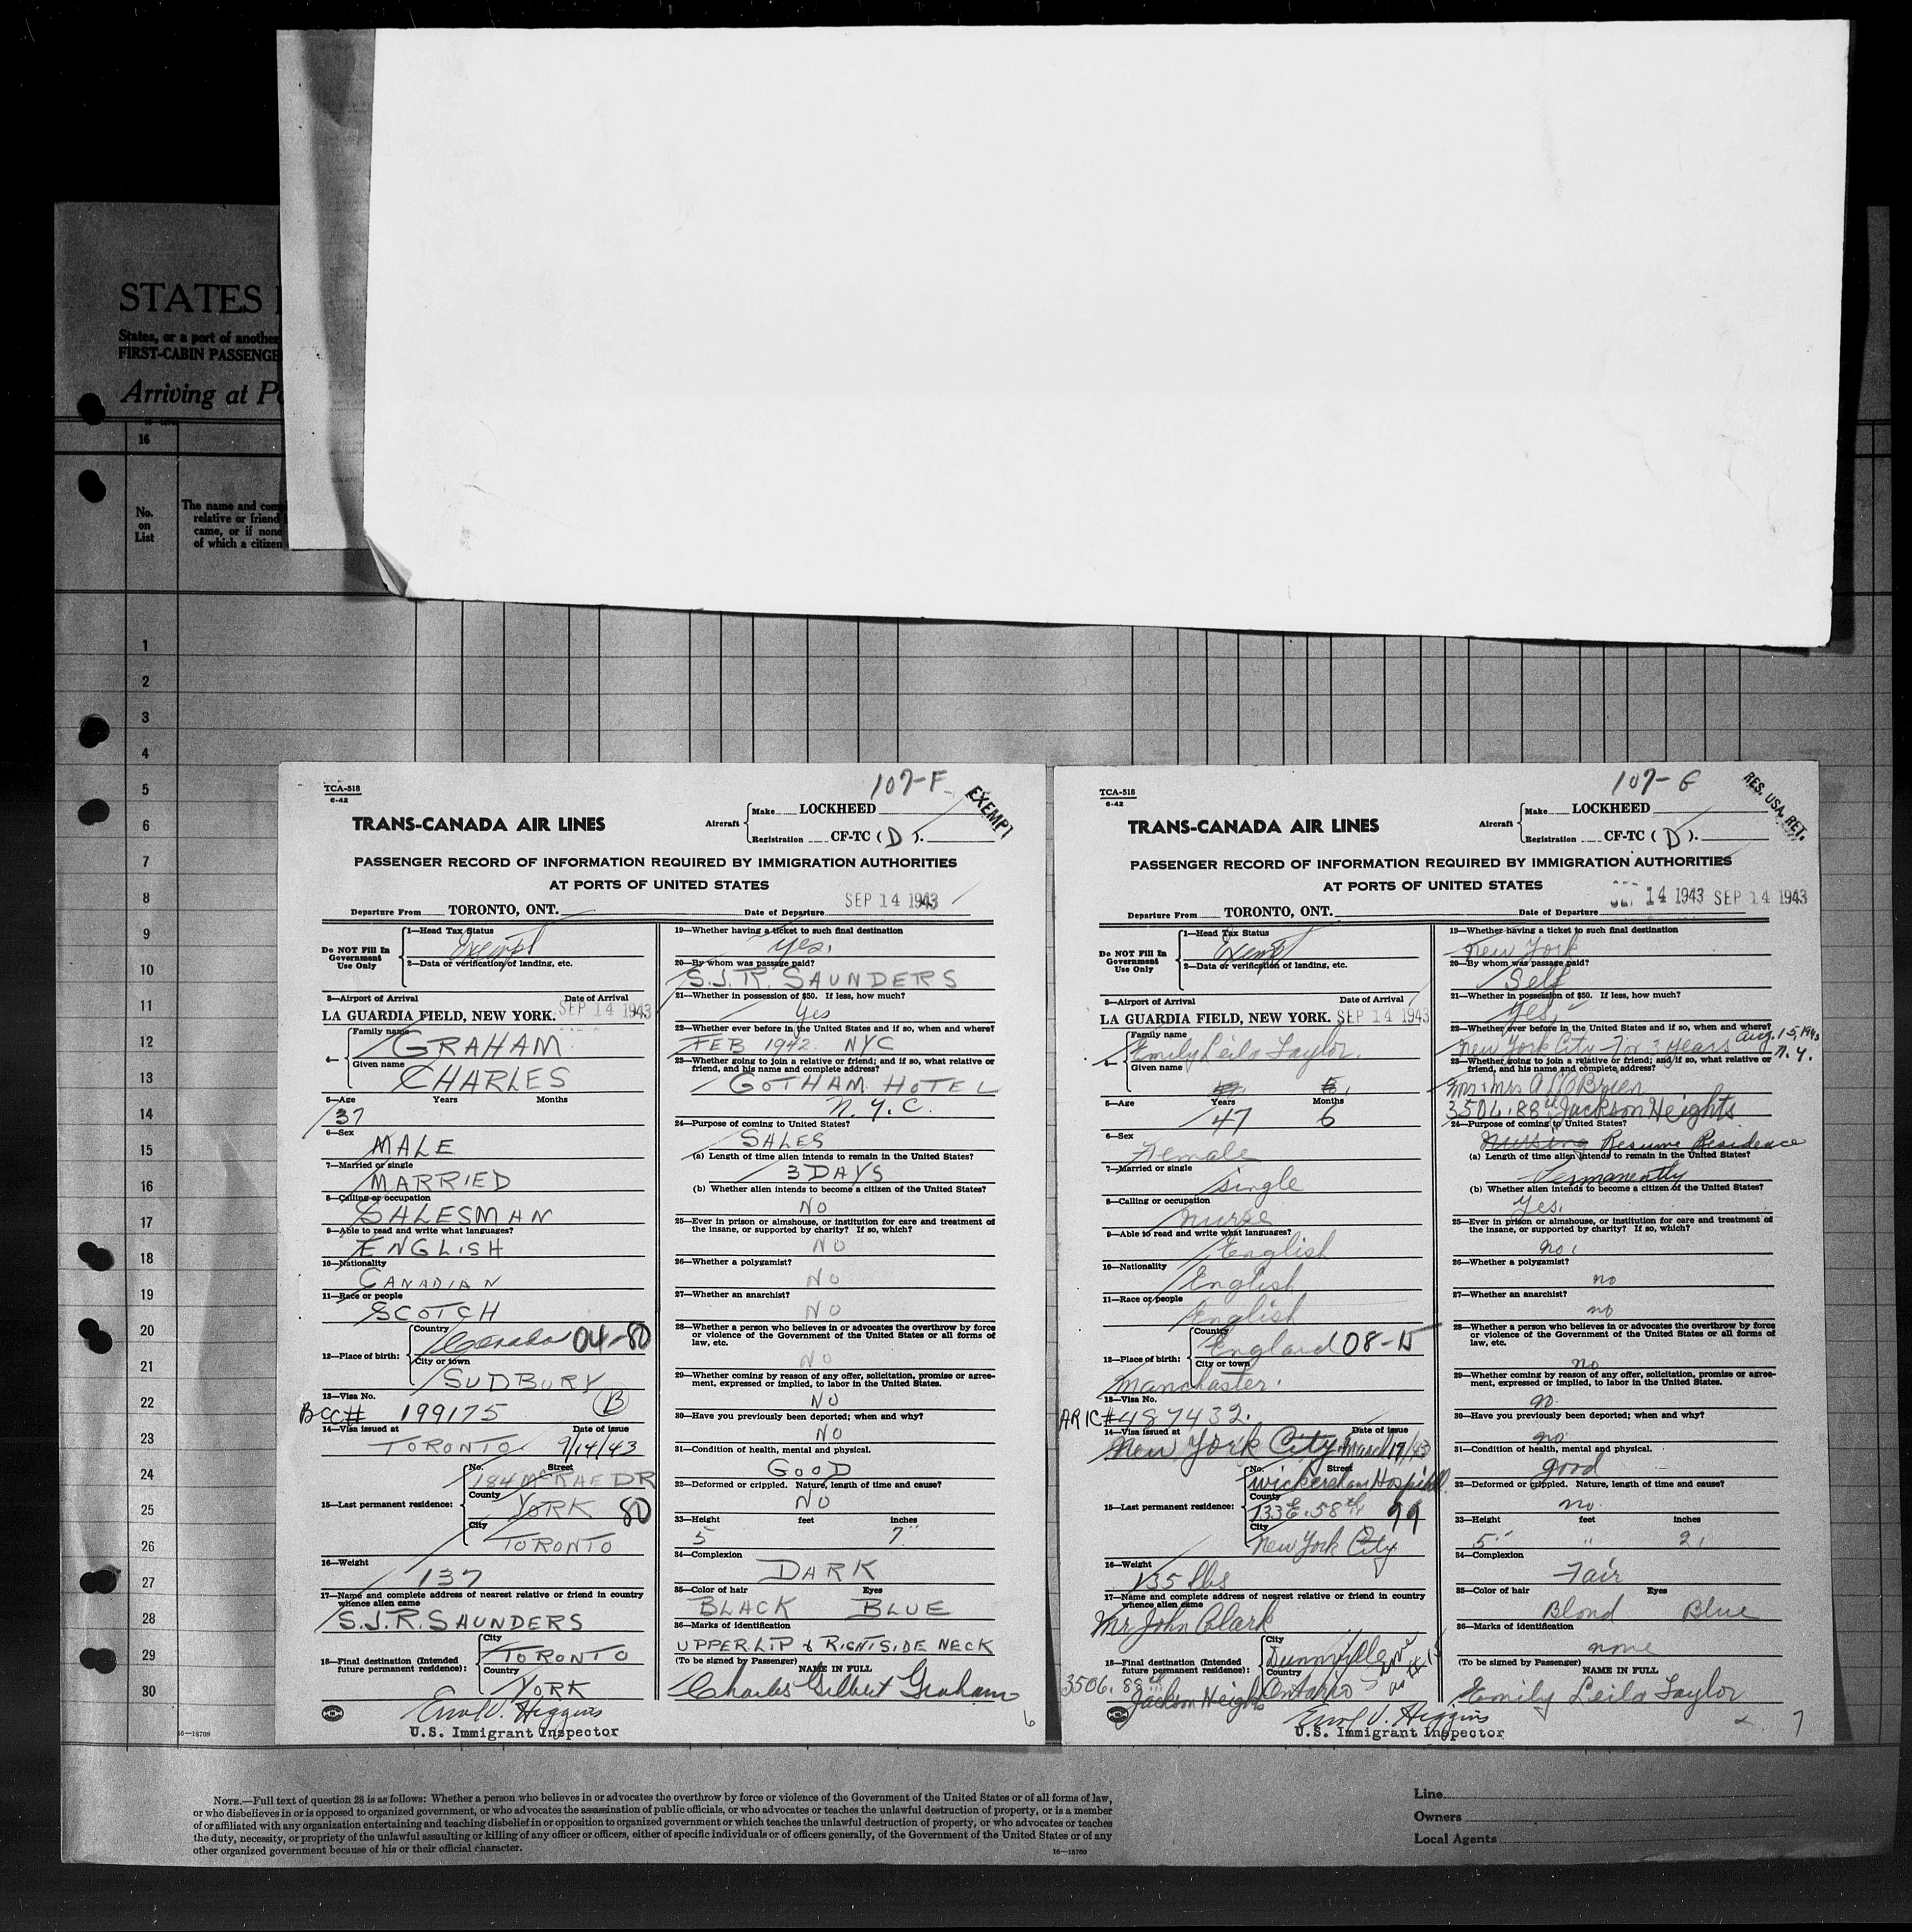 STATES
States, or a port of another
FIRST-CABIN PASSENGE
Arriving at Po
16
No.
on
List
The name and com
relative or friend
came, or if none
of which a citizen
1
2
3
4
5
6
7
8
9
10
11
12
13
14
15
16
17
18
19
20
21
22
23
24
25
26
27
28
29
30
16—18709
TCA-518
6-42
107-F
EXEMPT
TRANS-CANADA AIR LINES
Aircraft
Make LOCKHEED
Registration CF-TC (D).
PASSENGER RECORD OF INFORMATION REQUIRED BY IMMIGRATION AUTHORITIES
AT PORTS OF UNITED STATES
SEP 14 1943
Departure From TORONTO, ONT. Date of Departure
Do NOT Fill In
Government
Use Only
1—Head Tax Status
Exempt
2—Data or verification of landing, etc.
3—Airport of Arrival Date of Arrival
LA GUARDIA FIELD, NEW YORK. SEP 14 1943
4—
Family name
GRAHAM
Given name
CHARLES
5—Age Years Months
37
6—Sex
MALE
7—Married or single
MARRIED
8—Calling or occupation
SALESMAN
9—Able to read and write what languages?
ENGLISH
10—Nationality
CANADIAN
11—Race or people
SCOTCH
12—Place of birth:
Country
Canada 04-80
City or town
SUDBURY
13—Visa No.
BCC# 199175 B
14—Visa issued at Date of issue
TORONTO 9/14/43
15—Last permanent residence:
No. Street
194 McRAE DR
County
YORK 80
City
TORONTO
16—Weight
137
17—Name and complete address of nearest relative or friend in country
whence alien came
S.J.R. SAUNDERS
18—Final destination (Intended
future permanent residence):
City
TORONTO
Country
YORK
Errol V. Higgins
U.S. Immigrant Inspector
19—Whether having a ticket to such final destination
Yes,
20—By whom was passage paid?
S.J.R. SAUNDERS
21—Whether in possession of $50. If less, how much?
Yes
22—Whether ever before in the United States and if so, when and where?
FEB 1942 NYC
23—Whether going to join a relative or friend; and if so, what relative or
friend, and his name and complete address?
GOTHAM HOTEL
N.Y.C.
24—Purpose of coming to United States?
SALES
(a) Length of time alien intends to remain in the United States?
3 DAYS
(b) Whether alien intends to become a citizen of the United States?
NO
25—Ever in prison or almshouse, or institution for care and treatment of
the insane, or supported by charity? If so, which?
NO
26—Whether a polygamist?
NO
27—Whether an anarchist?
NO
28—Whether a person who believes in or advocates the overthrow by force
or violence of the Government of the United States or all forms of
law, etc.
NO
29—Whether coming by reason of any offer, solicitation, promise or agree-
ment, expressed or implied, to labor in the United States.
NO
30—Have you previously been deported; when and why?
NO
31—Condition of health, mental and physical.
GOOD
32—Deformed or crippled. Nature, length of time and cause?
NO
33—Height feet inches
5 7"
34—Complexion
DARK
35—Color of hair Eyes
BLACK BLUE
36—Marks of identification
UPPER LIP & RIGHT SIDE NECK
(To be signed by Passenger) NAME IN FULL
Charles Gilbert Graham
6
TCA-518
6-42
107-G
RES. USA. RET.
TRANS-CANADA AIR LINES
Aircraft
Make LOCKHEED
Registration CF-TC (D).
PASSENGER RECORD OF INFORMATION REQUIRED BY IMMIGRATION AUTHORITIES
AT PORTS OF UNITED STATES
SEP 14 1943 SEP 14 1943
Departure From TORONTO, ONT. Date of Departure
Do NOT Fill In
Government
Use Only
1—Head Tax Status
Exempt
2—Data or verification of landing, etc.
3—Airport of Arrival Date of Arrival
LA GUARDIA FIELD, NEW YORK. SEP 14 1943
4—
Family name
Emily Leila Taylor.
Given name
5—Age Years Months
47 6
6—Sex
Female
7—Married or single
single
8—Calling or occupation
nurse
9—Able to read and write what languages?
English
10—Nationality
English
11—Race or people
English
12—Place of birth:
Country
England 08-15
City or town
Manchaster.
13—Visa No.
ARIC# 487432.
14—Visa issued at Date of issue
New York City March 17/43
15—Last permanent residence:
No. Street
Wickersham Hospital
County
133 E. 58th 99
City
New York City
16—Weight
135 lbs
17—Name and complete address of nearest relative or friend in country
whence alien came
Mr John Clark
18—Final destination (Intended
future permanent residence):
City
Dunnville
Country
Ontario
3506. 88th
Jackson Heights
Errol V. Higgins
U.S. Immigrant Inspector
19—Whether having a ticket to such final destination
New York
20—By whom was passage paid?
Self
21—Whether in possession of $50. If less, how much?
Yes,
22—Whether ever before in the United States and if so, when and where?
Aug. 15, 1943
New York City - for 3 years N.Y.
23—Whether going to join a relative or friend; and if so, what relative or
friend, and his name and complete address?
Mr & Mrs A. O'Brien
3506. 88th Jackson Heights
24—Purpose of coming to United States?
Nursing Resume Residence
(a) Length of time alien intends to remain in the United States?
Permanently
(b) Whether alien intends to become a citizen of the United States?
Yes.
25—Ever in prison or almshouse, or institution for care and treatment of
the insane, or supported by charity? If so, which?
no.
26—Whether a polygamist?
no
27—Whether an anarchist?
no
28—Whether a person who believes in or advocates the overthrow by force
or violence of the Government of the United States or all forms of
law, etc.
no
29—Whether coming by reason of any offer, solicitation, promise or agree-
ment, expressed or implied, to labor in the United States.
no.
30—Have you previously been deported; when and why?
no
31—Condition of health, mental and physical.
good
32—Deformed or crippled. Nature, length of time and cause?
no.
33—Height feet inches
5' " 2,
34—Complexion
Fair
35—Color of hair Eyes
Blond Blue
36—Marks of identification
none
(To be signed by Passenger) NAME IN FULL
Emily Leila Taylor
7
NOTE.—Full text of question 28 is as follows: Whether a person who believes in or advocates the overthrow by force or violence of the Government of the United States or of all forms of law,
or who disbelieves in or is opposed to organized government, or who advocates the assassination of public officials, or who advocates or teaches the unlawful destruction of property, or is a member
of or affiliated with any organization entertaining and teaching disbelief in or opposition to organized government or which teaches the unlawful destruction of property, or who advocates or teaches
the duty, necessity, or propriety of the unlawful assaulting or killing of any officer or officers, either of specific individuals or of officers generally, of the Government of the United States or of any
other organized government because of his or their official character.
16—18709
Line
Owners
Local Agents